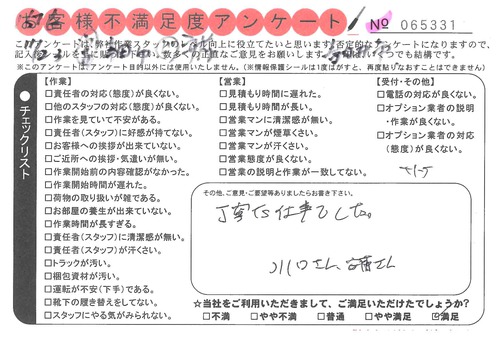 お客様不満足度アンケート!
No 065331
このアンケートは、弊社作業スタッフのレベル向上に役立てたいと思います。否定的なアンケートになりますので、
記入
数多くの正直なご意見をお願いします。
でも結構です。
※このアンケートは、アンケート目的以外には使用いたしません。(※情報保護シールは1度はがすと、再度貼りなおすことはできません)
チェックリスト
【作業】
□責任者の対応(態度)が良くない。
□他のスタッフの対応(態度)が良くない。
□作業を見ていて不安がある。
□責任者(スタッフ)に好感が持てない。
□お客様への挨拶が出来ていない。
□ご近所への挨拶・気遣いが無い。
□作業開始前の内容確認がなかった。
□作業開始時間が遅れた。
□荷物の取り扱いが雑である。
□お部屋の養生が出来ていない。
□作業時間が長すぎる。
□責任者(スタッフ)に清潔感が無い。
□責任者(スタッフ)が汗くさい。
□トラックが汚い。
□梱包資材が汚い。
□運転が不安(下手)である。
□靴下の履き替えをしてない。
□スタッフにやる気がみられない。
【営業】
□見積もり時間に遅れた。
□見積もり時間が長い。
□営業マンに清潔感が無い。
□営業マンが煙草くさい。
□営業マンが汗くさい。
□営業態度が良くない。
□営業の説明と作業が一致してない。
【受付・その他】
□電話の対応が良くない。
□オプション業者の説明
・作業が良くない。
□オプション業者の対応
(態度)が良くない。
その他、ご意見・ご要望等ありましたらお書き下さい。
丁寧な仕事でした。
川口さん、
さん
☆当社をご利用いただきまして、ご満足いただけたでしょうか?
□不満 □やや不満 □普通 □やや満足 ☑満足